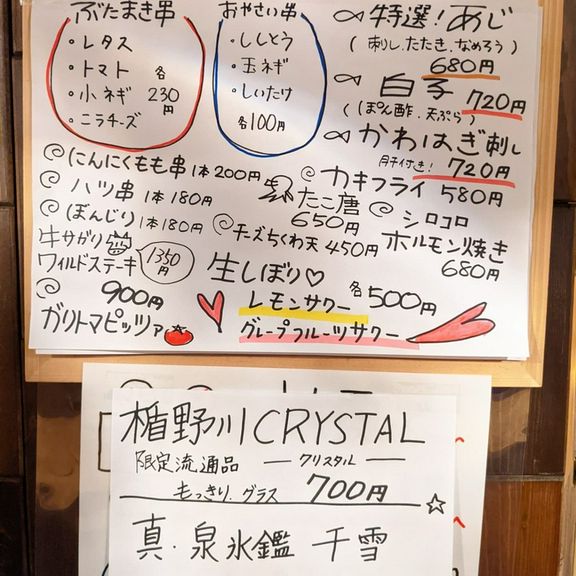 ぶたまき串
・レタス
・トマト
・小ネギ
・ニラチーズ
各230円
おやさい串
・ししとう
・玉ネギ
・しいたけ
各100円
特選!あじ
(刺し.たたき.なめろう)
680円
白子 720円
(ぽん酢.天ぷら)
かわはぎ刺し
肝付き! 720円
にんにくもも串 1本200円
ハツ串 1本180円
ぼんじり 1本180円
牛サガリ
ワイルドステーキ
1350円
900円
ガリトマピッツァ
カキフライ 580円
たこ唐
650円
チーズちくわ天 450円
シロコロ
ホルモン焼き
680円
生しぼり♡
レモンサワー
グレープフルーツサワー
各500円
楯野川CRYSTAL
限定流通品 ―クリスタル―
もっきり.グラス 700円
☆
真・泉氷鑑 千雪